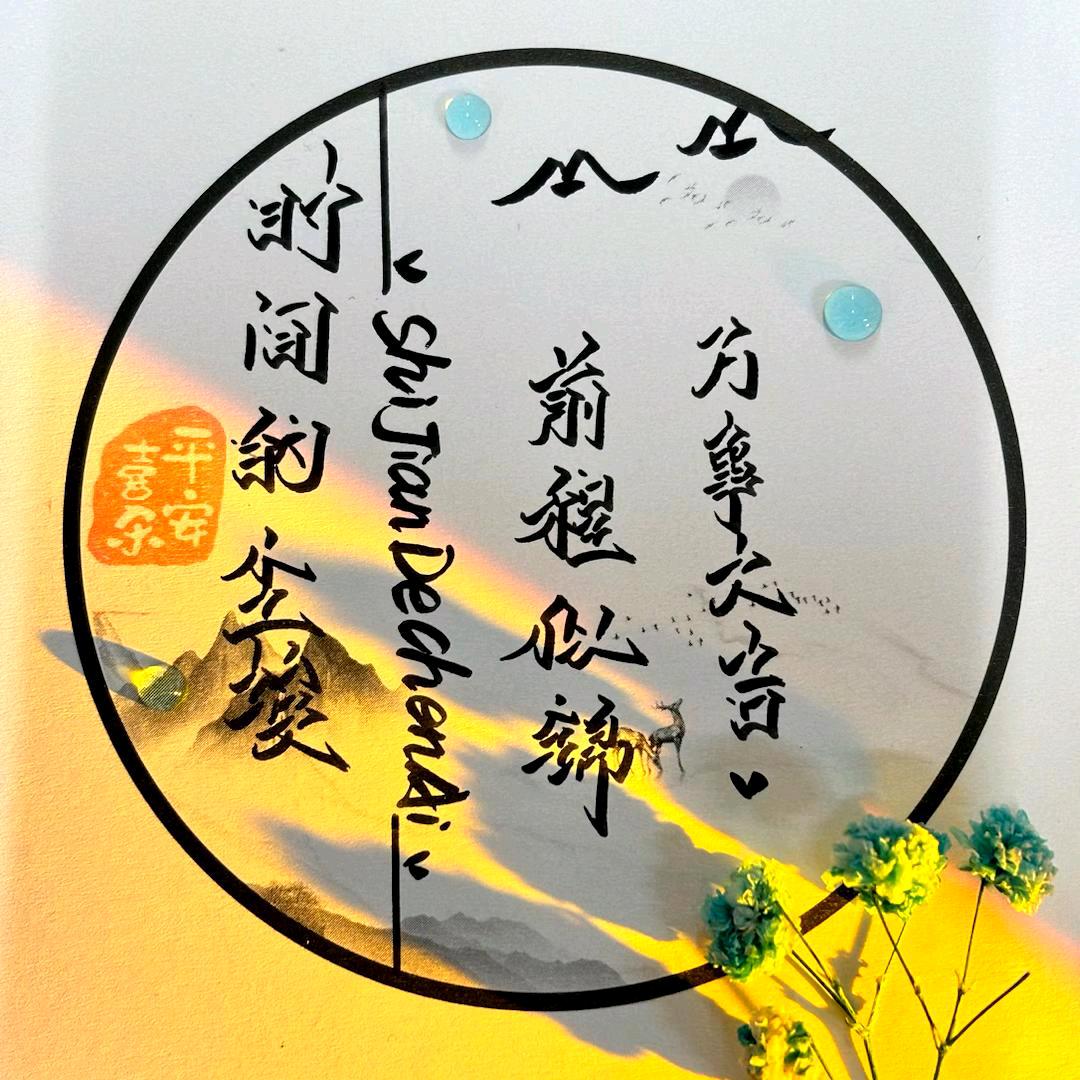 万事大吉
前程似锦
ShiJianDeChenAi
时间的尘埃
平安
喜乐